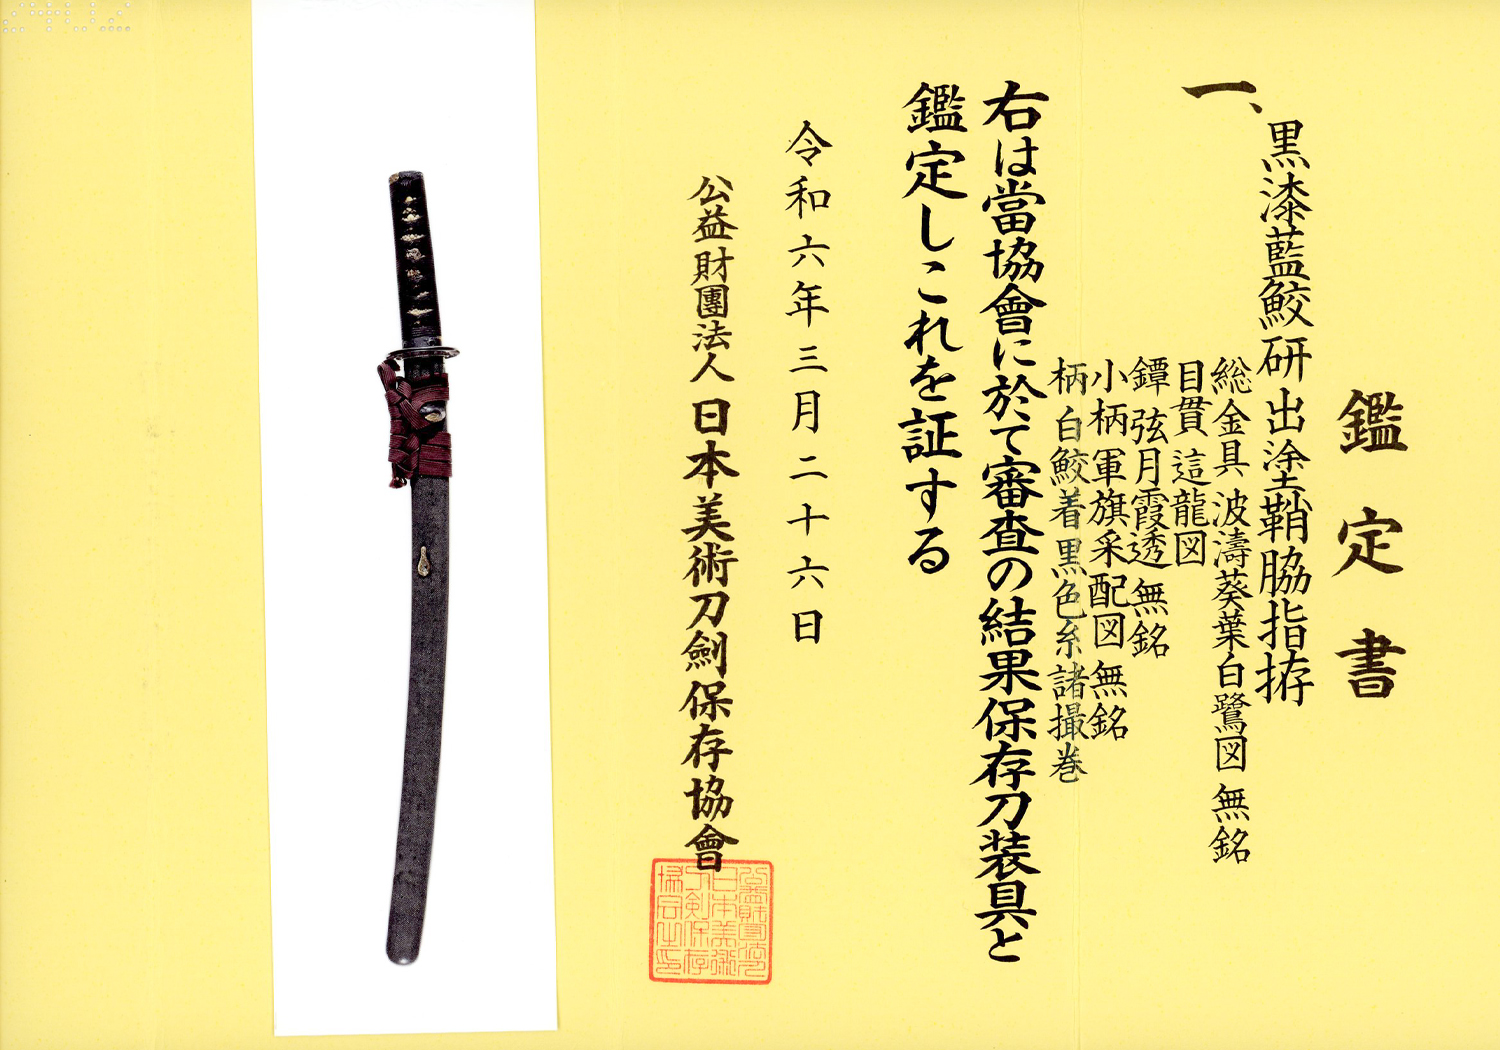 鑑定書
一、黒漆藍鮫研出塗鞘脇指拵
総金具 波濤葵葉白鷺図 無銘
目貫 這龍図
鐔 弦月霞透 無銘
小柄 軍旗采配図 無銘
柄 白鮫着黒色糸諸撮巻
右は當協會に於て審査の結果保存刀装具と
鑑定しこれを証する
令和六年三月二十六日
公益財團法人 日本美術刀劍保存協會